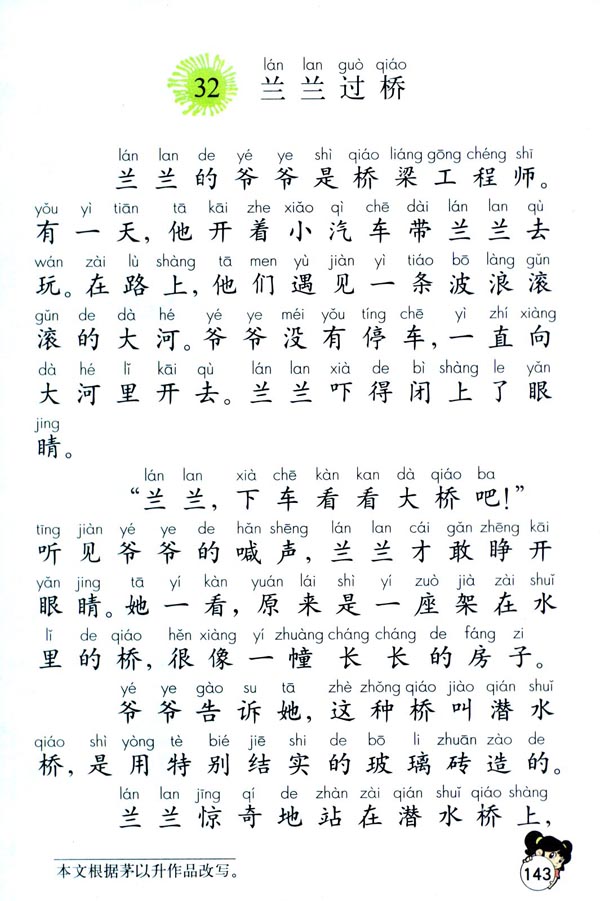 32
lán lan guò qiáo
兰兰过桥
lán lan de yé ye shì qiáo liáng gōng chéng shī
兰兰的爷爷是桥梁工程师。
yǒu yì tiān tā kāi zhe xiǎo qì chē dài lán lan qù
有一天，他开着小汽车带兰兰去
wán zài lù shàng tā men yù jiàn yì tiáo bō làng gǔn
玩。在路上，他们遇见一条波浪滚
gǔn de dà hé yé ye méi yǒu tíng chē yì zhí xiàng
滚的大河。爷爷没有停车，一直向
dà hé lǐ kāi qù lán lan xià de bì shàng le yǎn
大河里开去。兰兰吓得闭上了眼
jing
睛。
lán lan xià chē kàn kan dà qiáo ba
“兰兰，下车看看大桥吧！”
tīng jiàn yé ye de hǎn shēng lán lan cái gǎn zhēng kāi
听见爷爷的喊声，兰兰才敢睁开
yǎn jing tā yí kàn yuán lái shì yí zuò jià zài shuǐ
眼睛。她一看，原来是一座架在水
lǐ de qiáo hěn xiàng yí zhuàng cháng cháng de fáng zi
里的桥，很像一幢长长的房子。
yé ye gào su tā zhè zhǒng qiáo jiào qián shuǐ
爷爷告诉她，这种桥叫潜水
qiáo shì yòng tè bié jiē shi de bō li zhuān zào de
桥，是用特别结实的玻璃砖造的。
lán lan jīng qí de zhàn zài qián shuǐ qiáo shàng
兰兰惊奇地站在潜水桥上，
本文根据茅以升作品改写。
143